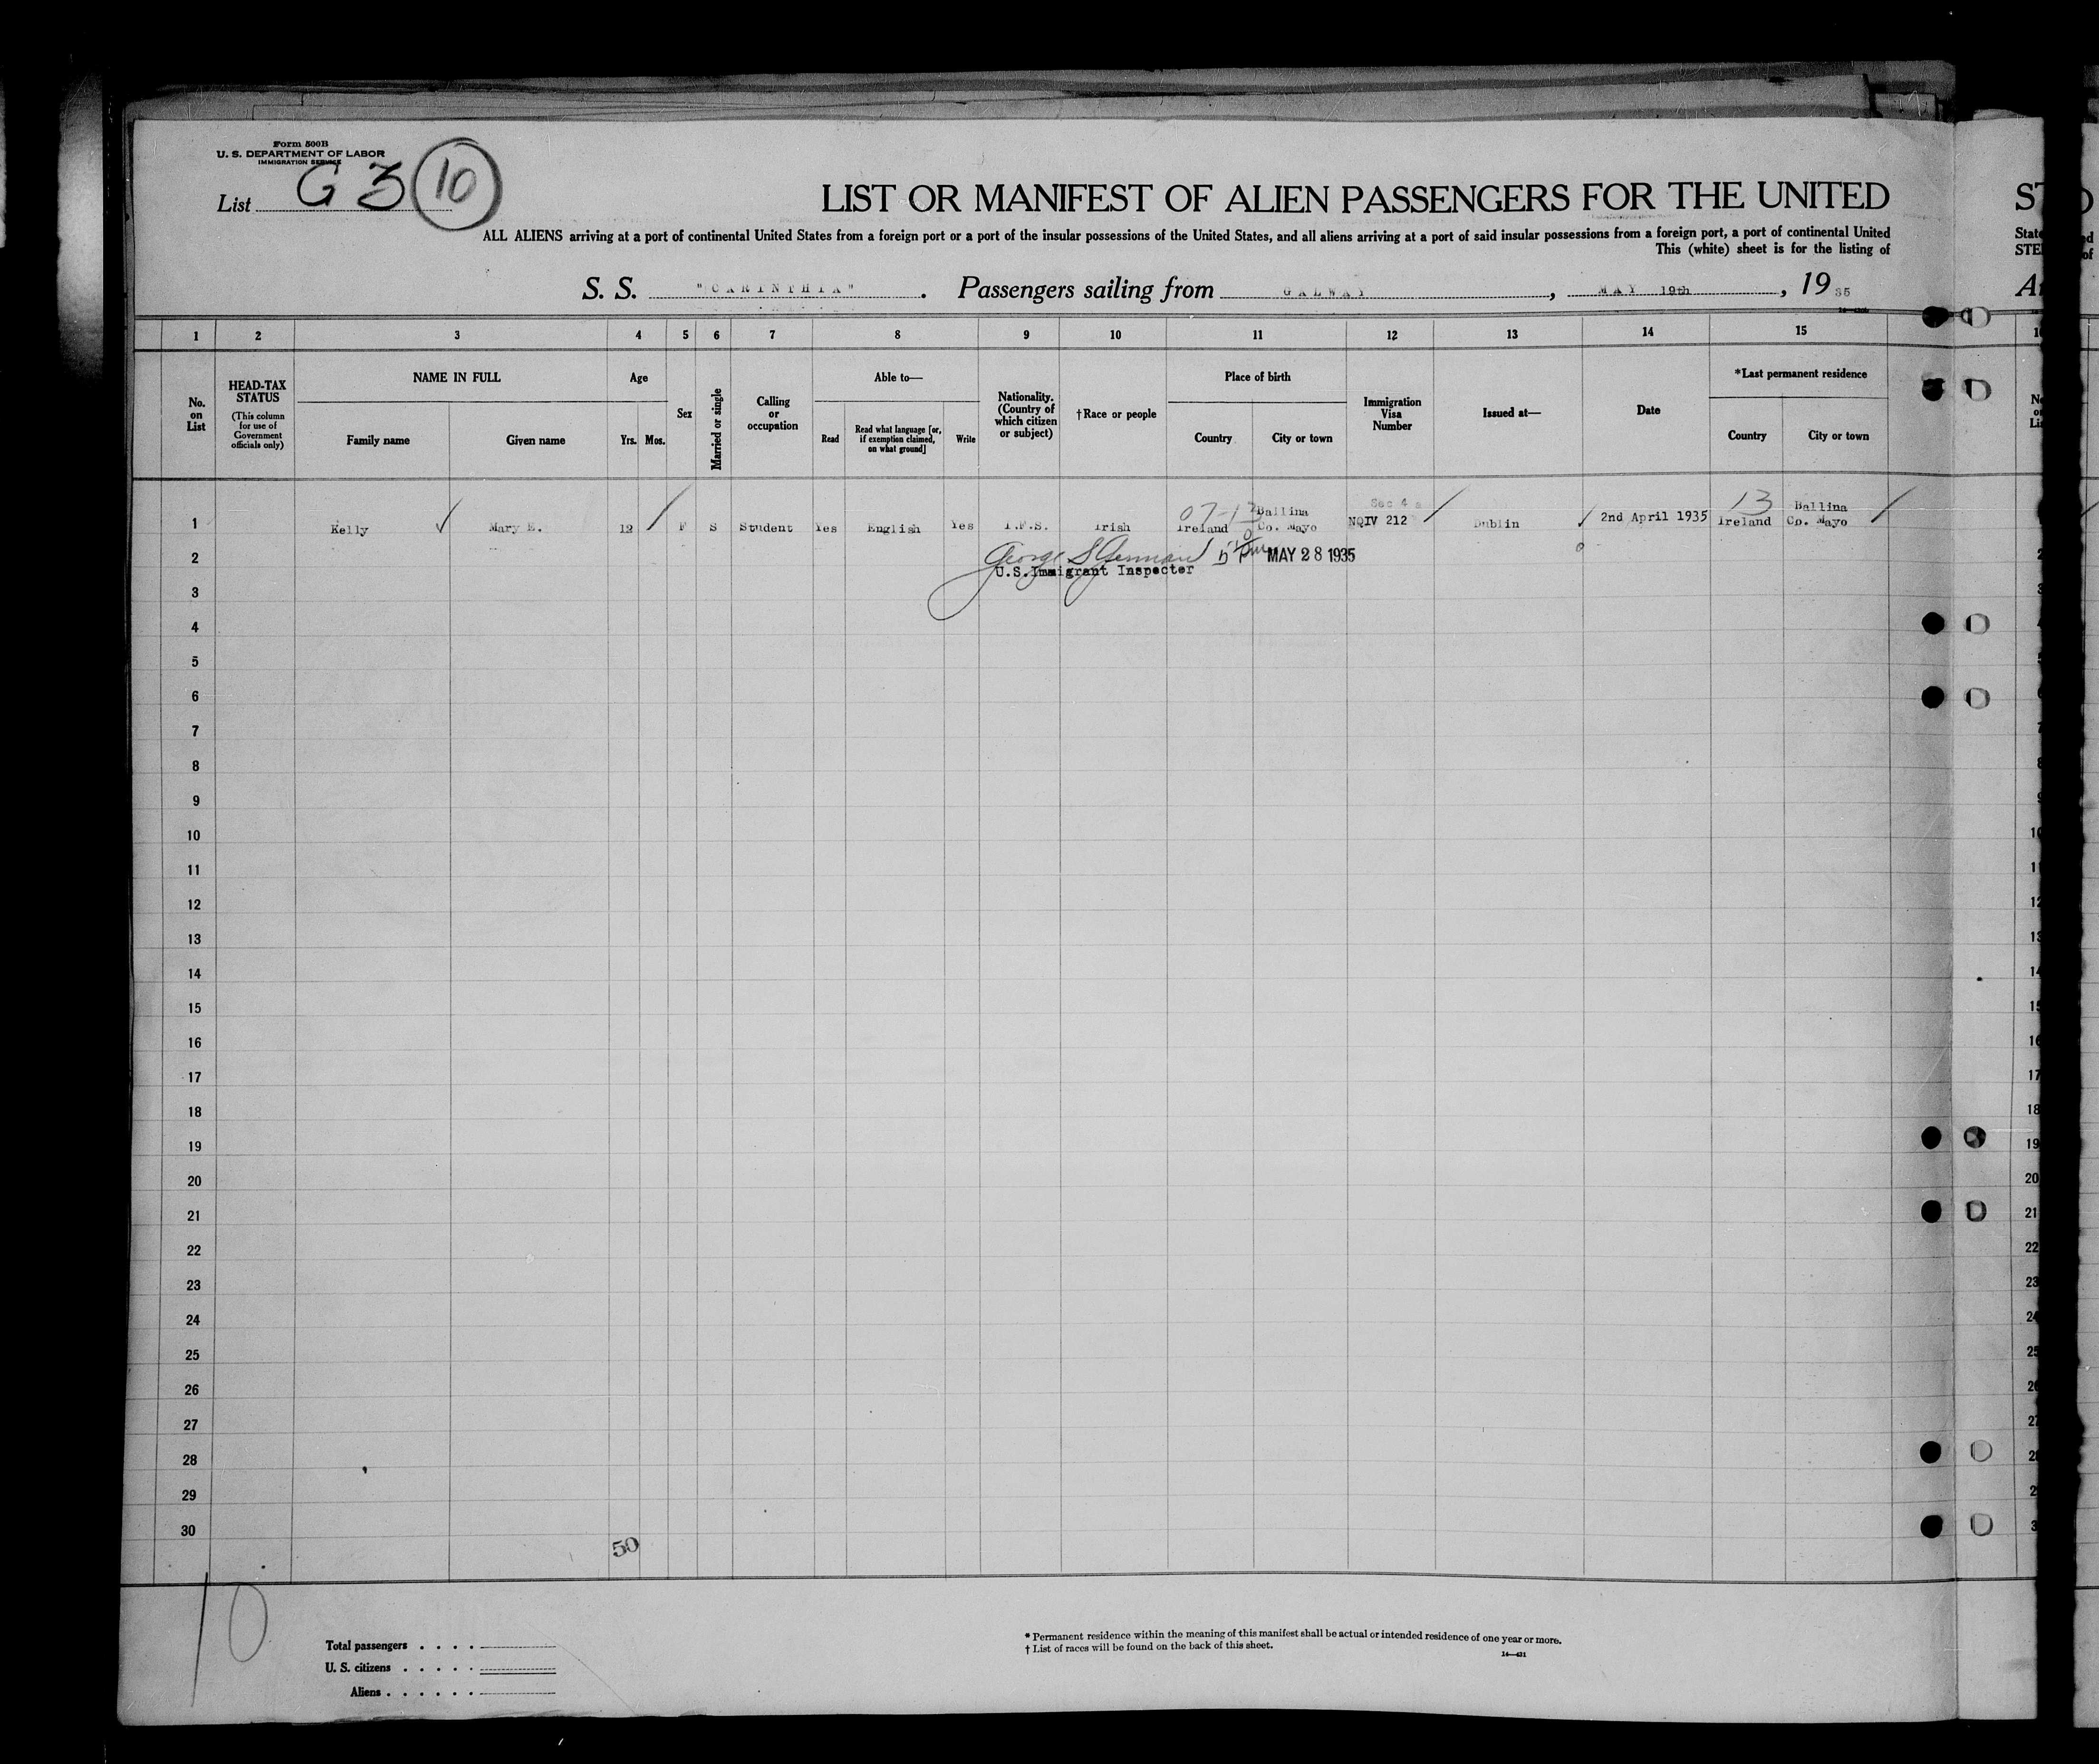 Form 500B
U. S. DEPARTMENT OF LABOR
IMMIGRATION SERVICE
List G 3 10
LIST OR MANIFEST OF ALIEN PASSENGERS FOR THE UNITED
ALL ALIENS arriving at a port of continental United States from a foreign port or a port of the insular possessions of the United States, and all aliens arriving at a port of said insular possessions from a foreign port, a port of continental United
This (white) sheet is for the listing of
S. S. "CARINTHIA". Passengers sailing from GALWAY, MAY 19th, 1935
1 2 3 4 5 6 7 8 9 10 11 12 13 14 15
No. on List
HEAD-TAX STATUS
(This column for use of Government officials only)
NAME IN FULL
Family name
Given name
Age
Yrs. Mos.
Sex
Married or single
Calling or occupation
Able to—
Read
Read what language [or, if exemption claimed, on what ground]
Write
Nationality. (Country of which citizen or subject)
†Race or people
Place of birth
Country
City or town
Immigration Visa Number
Issued at—
Date
*Last permanent residence
Country
City or town
07-13 Ballina Sec 4 13 Ballina
1 Kelly Mary E. 12 F S Student Yes English Yes I.F.S. Irish Ireland Co. Mayo NQIV 212 Dublin 2nd April 1935 Ireland Co. Mayo
2 George S MAY 28 1935
U.S.Immigrant Inspector
3
4
5
6
7
8
9
10
11
12
13
14
15
16
17
18
19
20
21
22
23
24
25
26
27
28
29
30
50
10
Total passengers
U. S. citizens
Aliens
* Permanent residence within the meaning of this manifest shall be actual or intended residence of one year or more.
† List of races will be found on the back of this sheet.
14—421